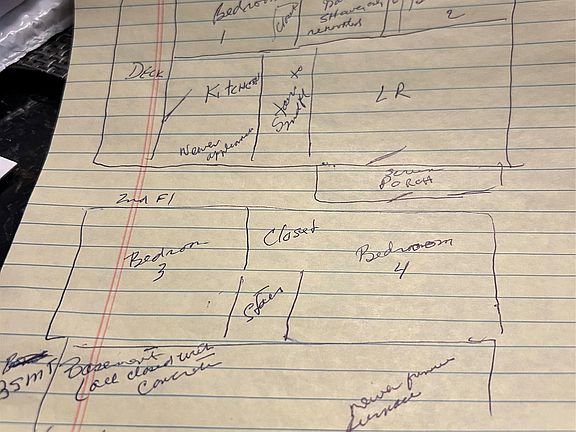 Bedroom
1
Closet
Shower only
renovated
2
DECK
Kitchen
Newer
appliances
Stairs to
2nd Fl
LR
Screen
PORCH
2nd Fl
Bedroom
3
Closet
Bedroom
4
Stairs
Basement
(all closed with
Concrete
newer
furnace